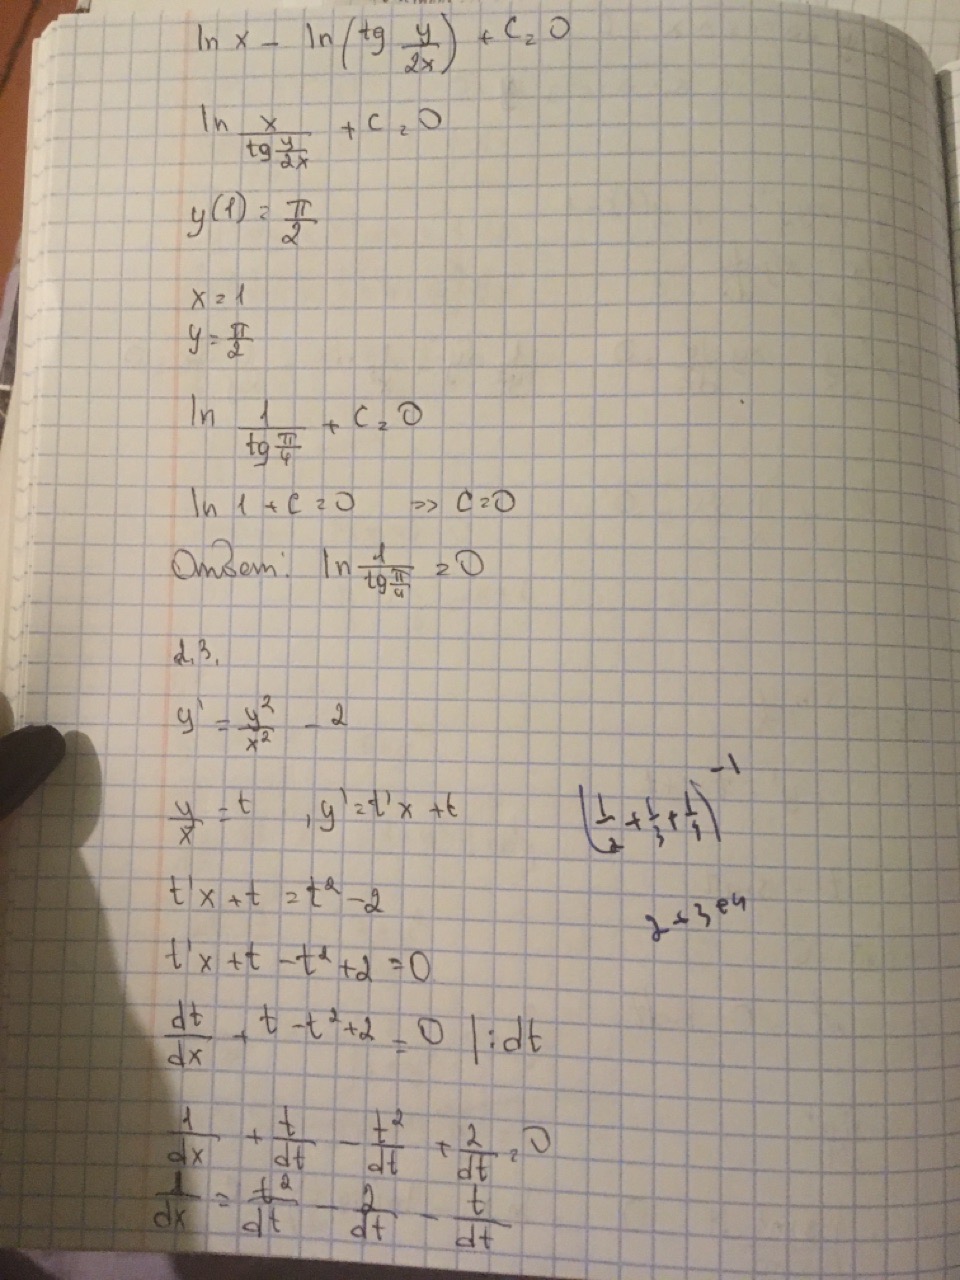 ln x - ln(tg y/2x) + C = 0
ln x/(tg y/2x) + C = 0
y(1) = π/2
x = 1
y = π/2
ln 1/(tg π/4) + C = 0
ln 1 + C = 0 => C = 0
Ответ: ln 1/(tg π/4) = 0
2.3.
y' = y²/x² - 2
y/x = t , y' = t'x + t
(1/2 + 1/3 + 1/4)⁻¹
t'x + t = t² - 2
t'x + t - t² + 2 = 0
dt/dx + t - t² + 2 = 0 |:dt
1/dx + t/dt - t²/dt + 2/dt = 0
1/dx = t²/dt - 2/dt - t/dt